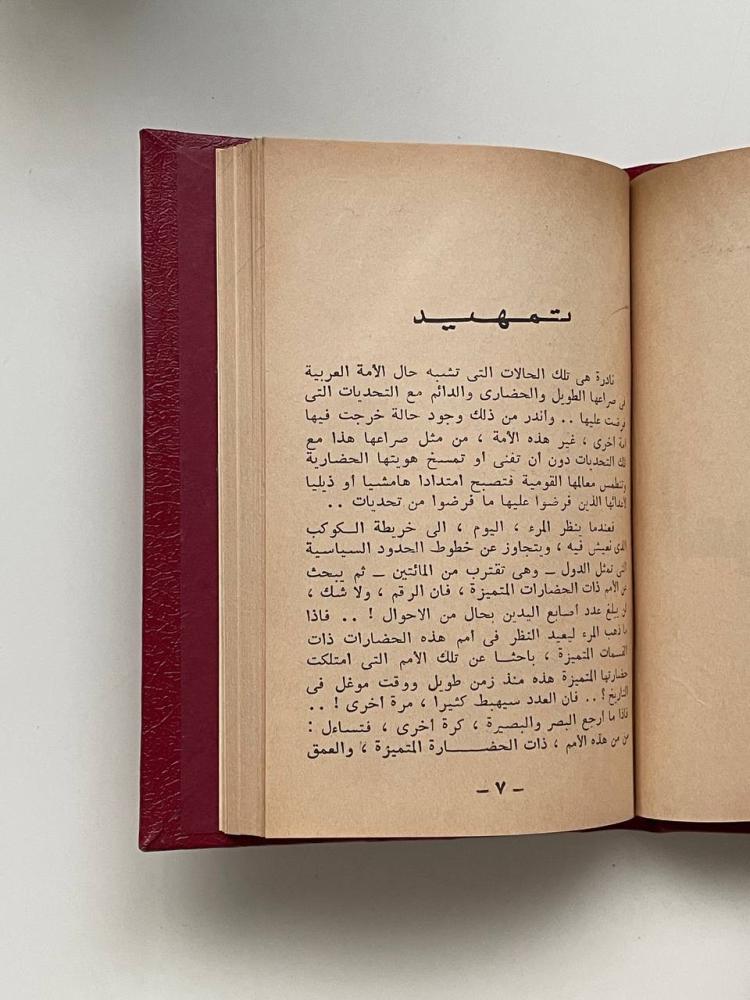 تمهيد
نادرة هى تلك الحالات التى تشبه حال الأمة العربية
فى صراعها الطويل والحضارى والدائم مع التحديات التى
فرضت عليها .. واندر من ذلك وجود حالة خرجت فيها
امة اخرى ، غير هذه الأمة ، من مثل صراعها هذا مع
تلك التحديات دون ان تفنى او تمسخ هويتها الحضارية
وتنطمس معالمها القومية فتصبح امتدادا هامشيا او ذيليا
لاعدائها الذين فرضوا عليها ما فرضوا من تحديات ..
فعندما ينظر المرء ، اليوم ، الى خريطة الكوكب
الذى نعيش فيه ، ويتجاوز عن خطوط الحدود السياسية
التى تمثل الدول ــ وهى تقترب من المائتين ــ ثم يبحث
عن الأمم ذات الحضارات المتميزة ، فان الرقم ، ولا شك ،
لن يبلغ عدد أصابع اليدين بحال من الاحوال ! .. فاذا
ما ذهب المرء ليعيد النظر فى امم هذه الحضارات ذات
القسمات المتميزة ، باحثا عن تلك الأمم التى امتلكت
حضارتها المتميزة هذه منذ زمن طويل ووقت موغل فى
التاريخ ؟ .. فان العدد سيهبط كثيرا ، مرة أخرى ! ..
فاذا ما ارجع البصر والبصيرة ، كرة أخرى ، فتساءل :
من من هذه الأمم ، ذات الحضارة المتميزة ، والعمق
ــ ٧ ــ